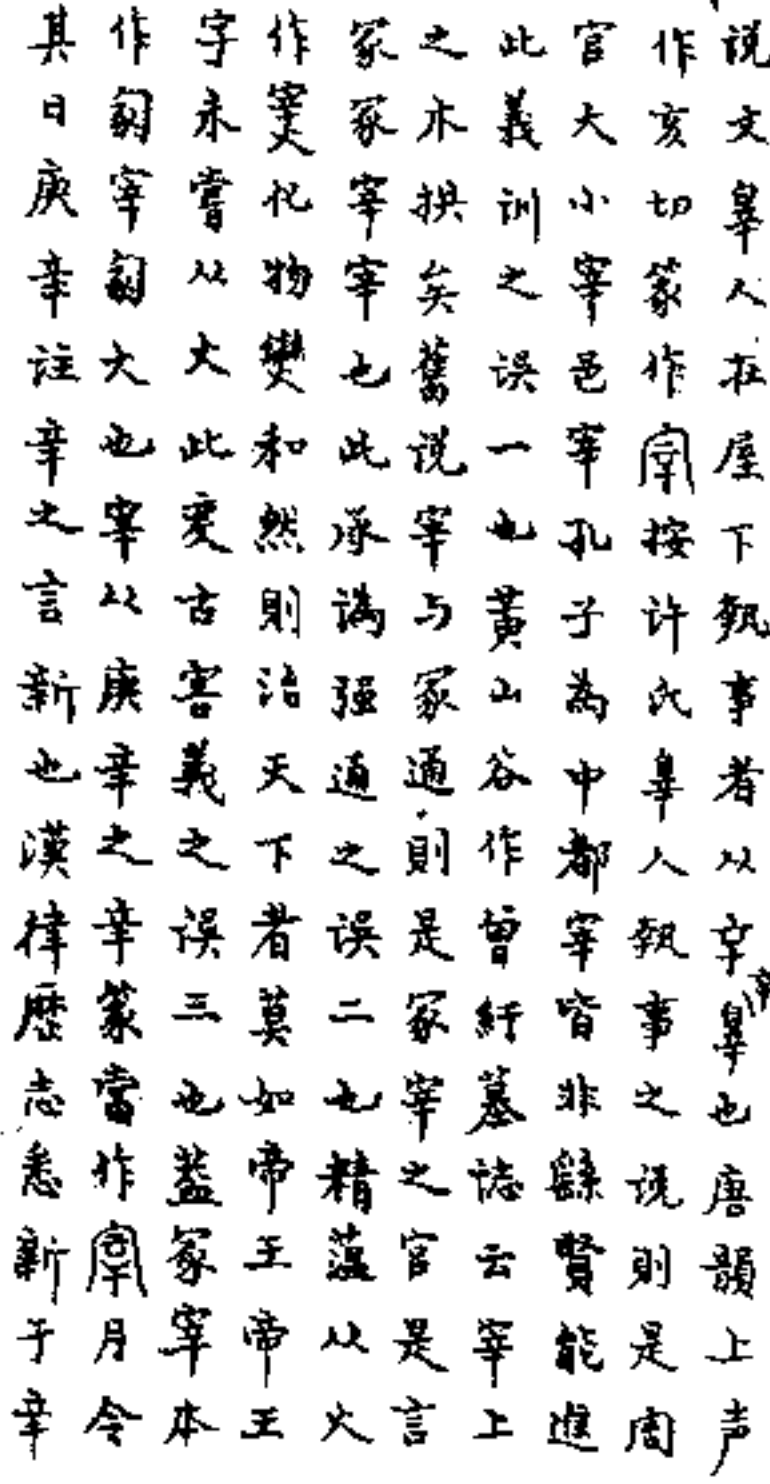 说文辠人在屋下執事者从辛辠也唐韻上声
作亥切篆作宰按许氏辠人執事之说則是周
官大小宰邑宰孔子為中都宰皆非繇賢能進
此義训之误一也黄山谷作曾紆墓誌云宰上
之木拱矣舊说宰与冢通則是冢宰之官是言
冢冢宰宰也此承譌强通之误二也精薀从火
作化物燮和然則治天下者莫如帝王帝王
字未嘗从火此变古害義之误三也蓋冢宰本
作宰大也宰从庚辛之辛篆當作宰月令
其日庚辛註辛之言新也漢律歷志悉新于辛